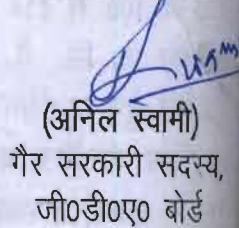 (अनिल स्वामी)
गैर सरकारी सदस्य,
जी0डी0ए0 बोर्ड